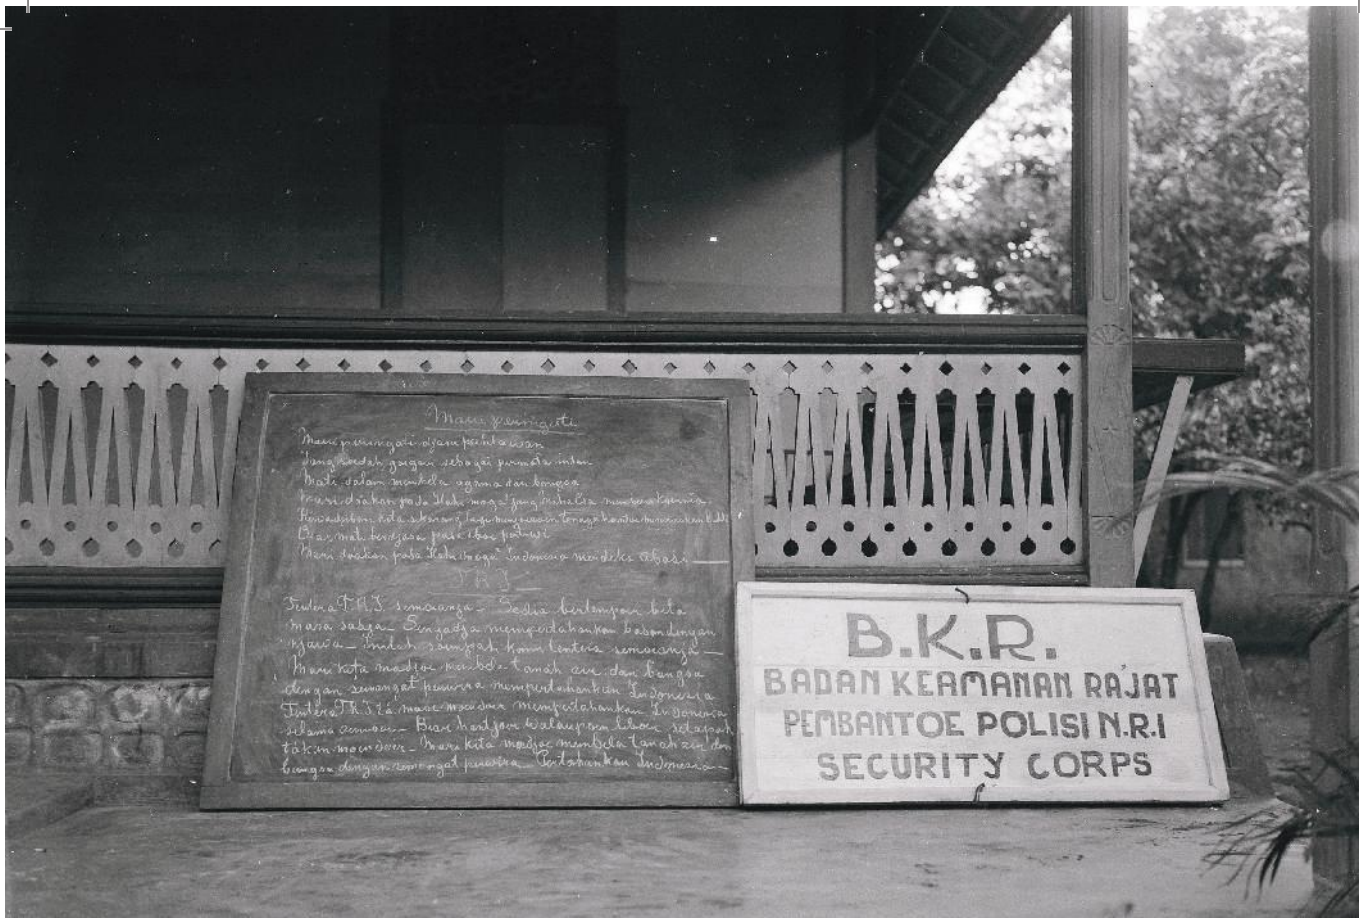 Mari peringati
Mari peringati djasa pahlawan
Jang soedah goegoer sebagai permata intan
Mati dalam membela agama dan bangsa
Mari doakan pada Ilahi moga² jang Maha Esa
Kewadjiban kita sekarang lagi
berdjasa pada iboe pertiwi
Mari doakan pada Ilahi moga² Indonesia merdeka abadi
T.R.I.
Tentera T.R.I. semoeanja – Sedia bertempoer bela
noesa sadja – Sengadja mempertahankan badan dengan
njawa – Inilah soempah kami tentera semoeanja –
Mari kita madjoe membela tanah air dan bangsa
dengan semangat perwira mempertahankan Indonesia
Tentera T.R.I. ta' maoe moendoer mempertahankan Indonesia
selama – Biar hantjoer walaupoen leboer setapak
takkan moendoer – Mari kita madjoe membela tanah air dan
bangsa dengan semangat perwira – Pertahankan Indonesia
B.K.R.
BADAN KEAMANAN RA'JAT
PEMBANTOE POLISI N.R.I
SECURITY CORPS